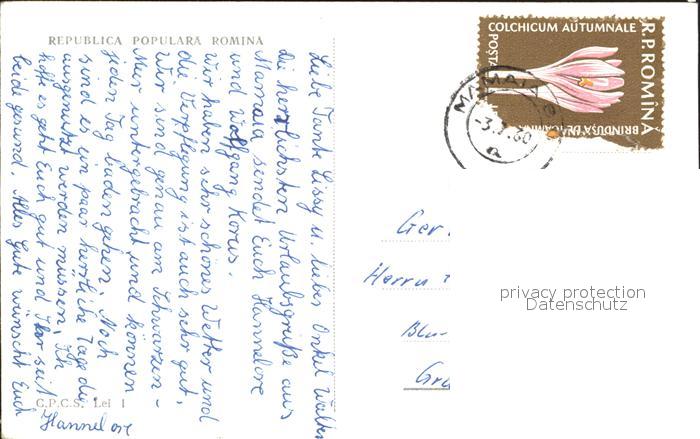 REPUBLICA POPULARĂ ROMÎNĂ
Liebe Tante Lissy u. lieber Onkel Walter
die herrlichsten Urlaubsgrüße aus
Mamaia sendet Euch Hannelore
und Wolfgang
wir haben sehr schönes Wetter und
die Verpflegung ist auch sehr gut,
wir sind genau am Schwarzen-
Meer untergebracht und können
jeden Tag baden gehen. Noch
sind es ein paar herrliche Tage die
ausgenutzt werden müssen. Ich
hoffe es geht Euch gut und Ihr seit
beide gesund. Alles Gute wünscht Euch
Hannelore
G.P.C.S. Lei 1
COLCHICUM AUTUMNALE
R.P.ROMÎNA
POSTA
BRÎNDUȘA DE TOAMNĂ
MAMAIA
60
a
Herrn
privacy protection
Datenschutz